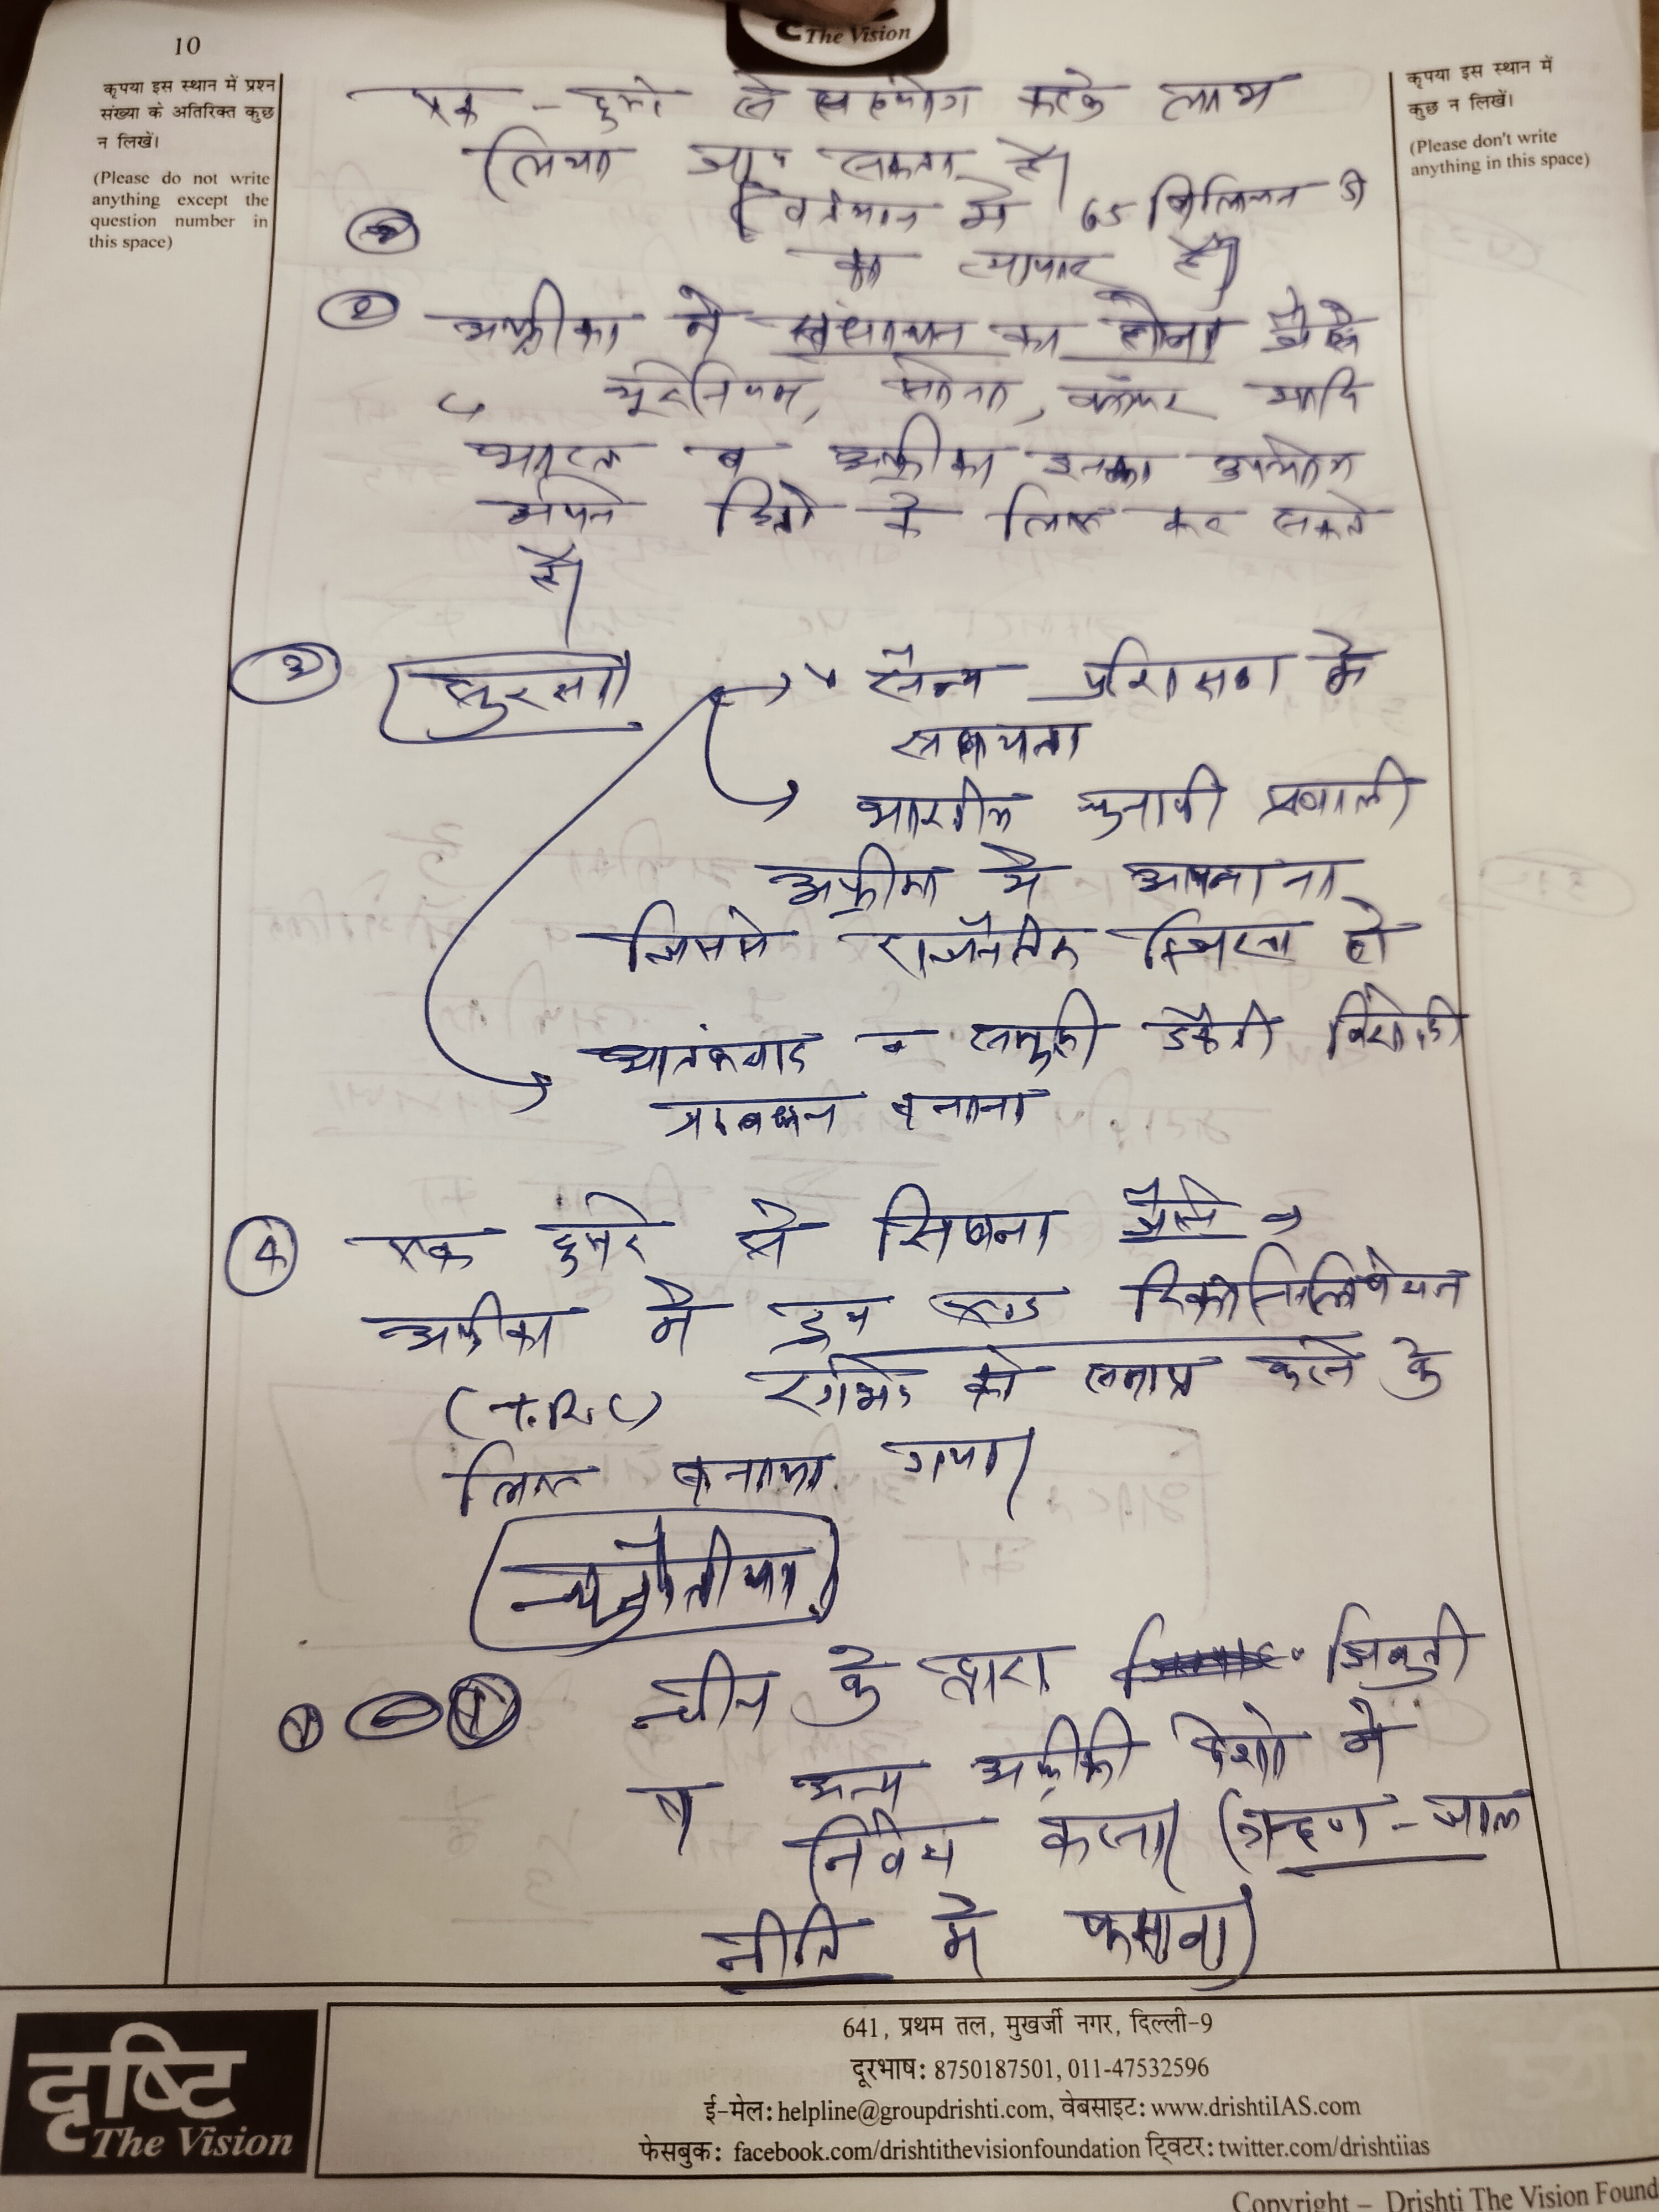 The Vision
10
कृपया इस स्थान में प्रश्न
संख्या के अतिरिक्त कुछ
न लिखें।
(Please do not write
anything except the
question number in
this space)
कृपया इस स्थान में
कुछ न लिखें।
(Please don't write
anything in this space)
एक - दुसरे से सहयोग करके लाभ
लिया जा सकता है।
(वर्तमान में 65 बिलियन डॉ
का व्यापार है)
② अफ्रीका में संसाधन का होना जैसे
यूरेनियम, सोना, कॉपर आदि
भारत व अफ्रीका इनका उपयोग
अपने हितो के लिए कर सकते
है।
③ सुरक्षा → सैन्य प्रशिक्षण में
सहायता
→ भारतीय चुनावी प्रणाली
अफ्रीका में अपनाना
जिससे राजनैतिक स्थिरता हो
→ आतंकवाद व समुद्री डकैती विरोधी
प्रावधान बनाना
④ एक दुसरे से सिखना जैसे →
अफ्रीका में ट्रुथ एण्ड रिकोन्सिलियेशन
(T.R.C) रंगभेद को समाप्त करने के
लिए बनाया गया।
चुनौतीया
① चीन के द्वारा जिबुती
व अन्य अफ्रीकी देशो में
निवेश करना (ऋण - जाल
नीति में फसाना)
दृष्टि
The Vision
641, प्रथम तल, मुखर्जी नगर, दिल्ली-9
दूरभाष: 8750187501, 011-47532596
ई-मेल: helpline@groupdrishti.com, वेबसाइट: www.drishtiIAS.com
फेसबुक: facebook.com/drishtithevisionfoundation ट्विटर: twitter.com/drishtiias
Copyright – Drishti The Vision Found